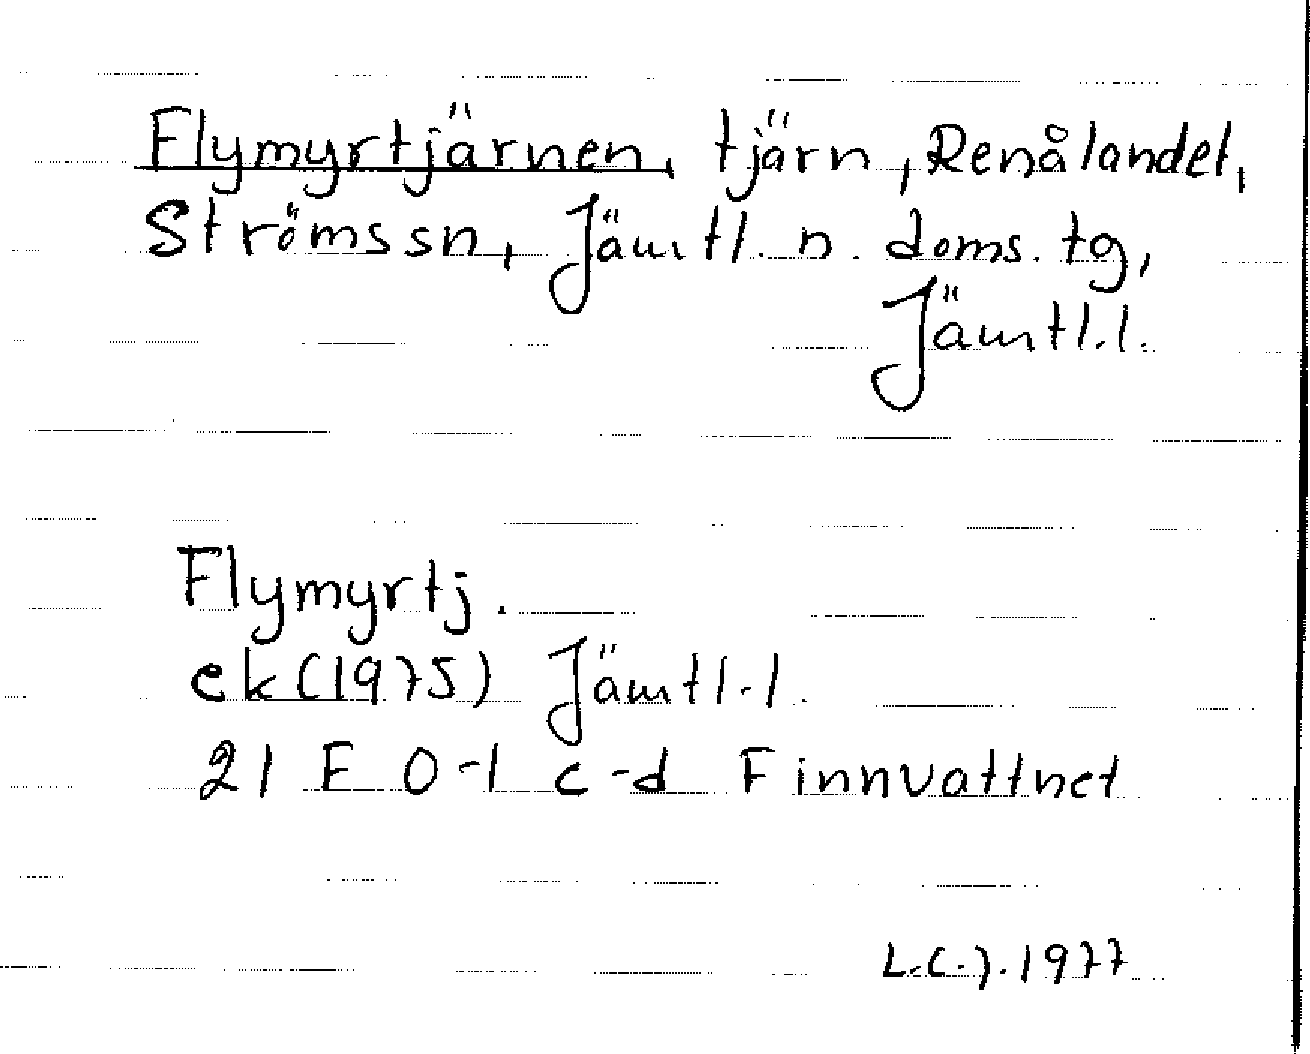 Flymyrtjärnen, tjärn, Renålandet,
Ströms sn, Jämtl. n. doms. tg,
Jämtl. l.
Flymyrtj.
ek (1975) Jämtl. l.
21 E 0-1 c-d Finnvattnet
L.C.J. 1977